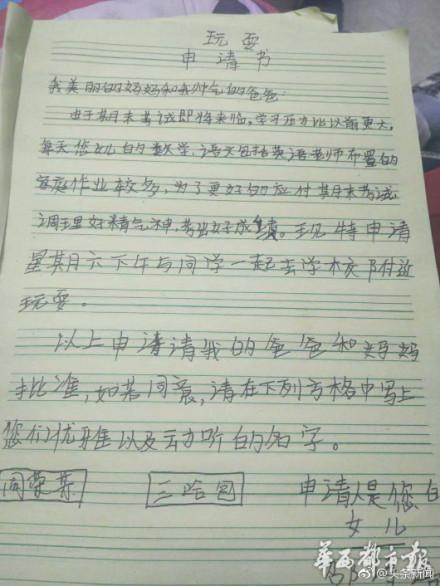 玩耍
申请书
我美丽的妈妈和我帅气的爸爸:
由于期末考试即将来临,学习压力比以前更大,
每天您儿的数学,语文包括英语老师布置的
家庭作业较多,为了更好的应付期末考试
调理好精气神,考出好成绩。现特申请
星期六下午与同学一起去学校附近
玩耍。
以上申请请我的爸爸和妈妈
批准,如若同意,请在下列方格中写上
您们优雅以及动听的名字。
申请人是您的
女儿
华西都市报
@头条新闻